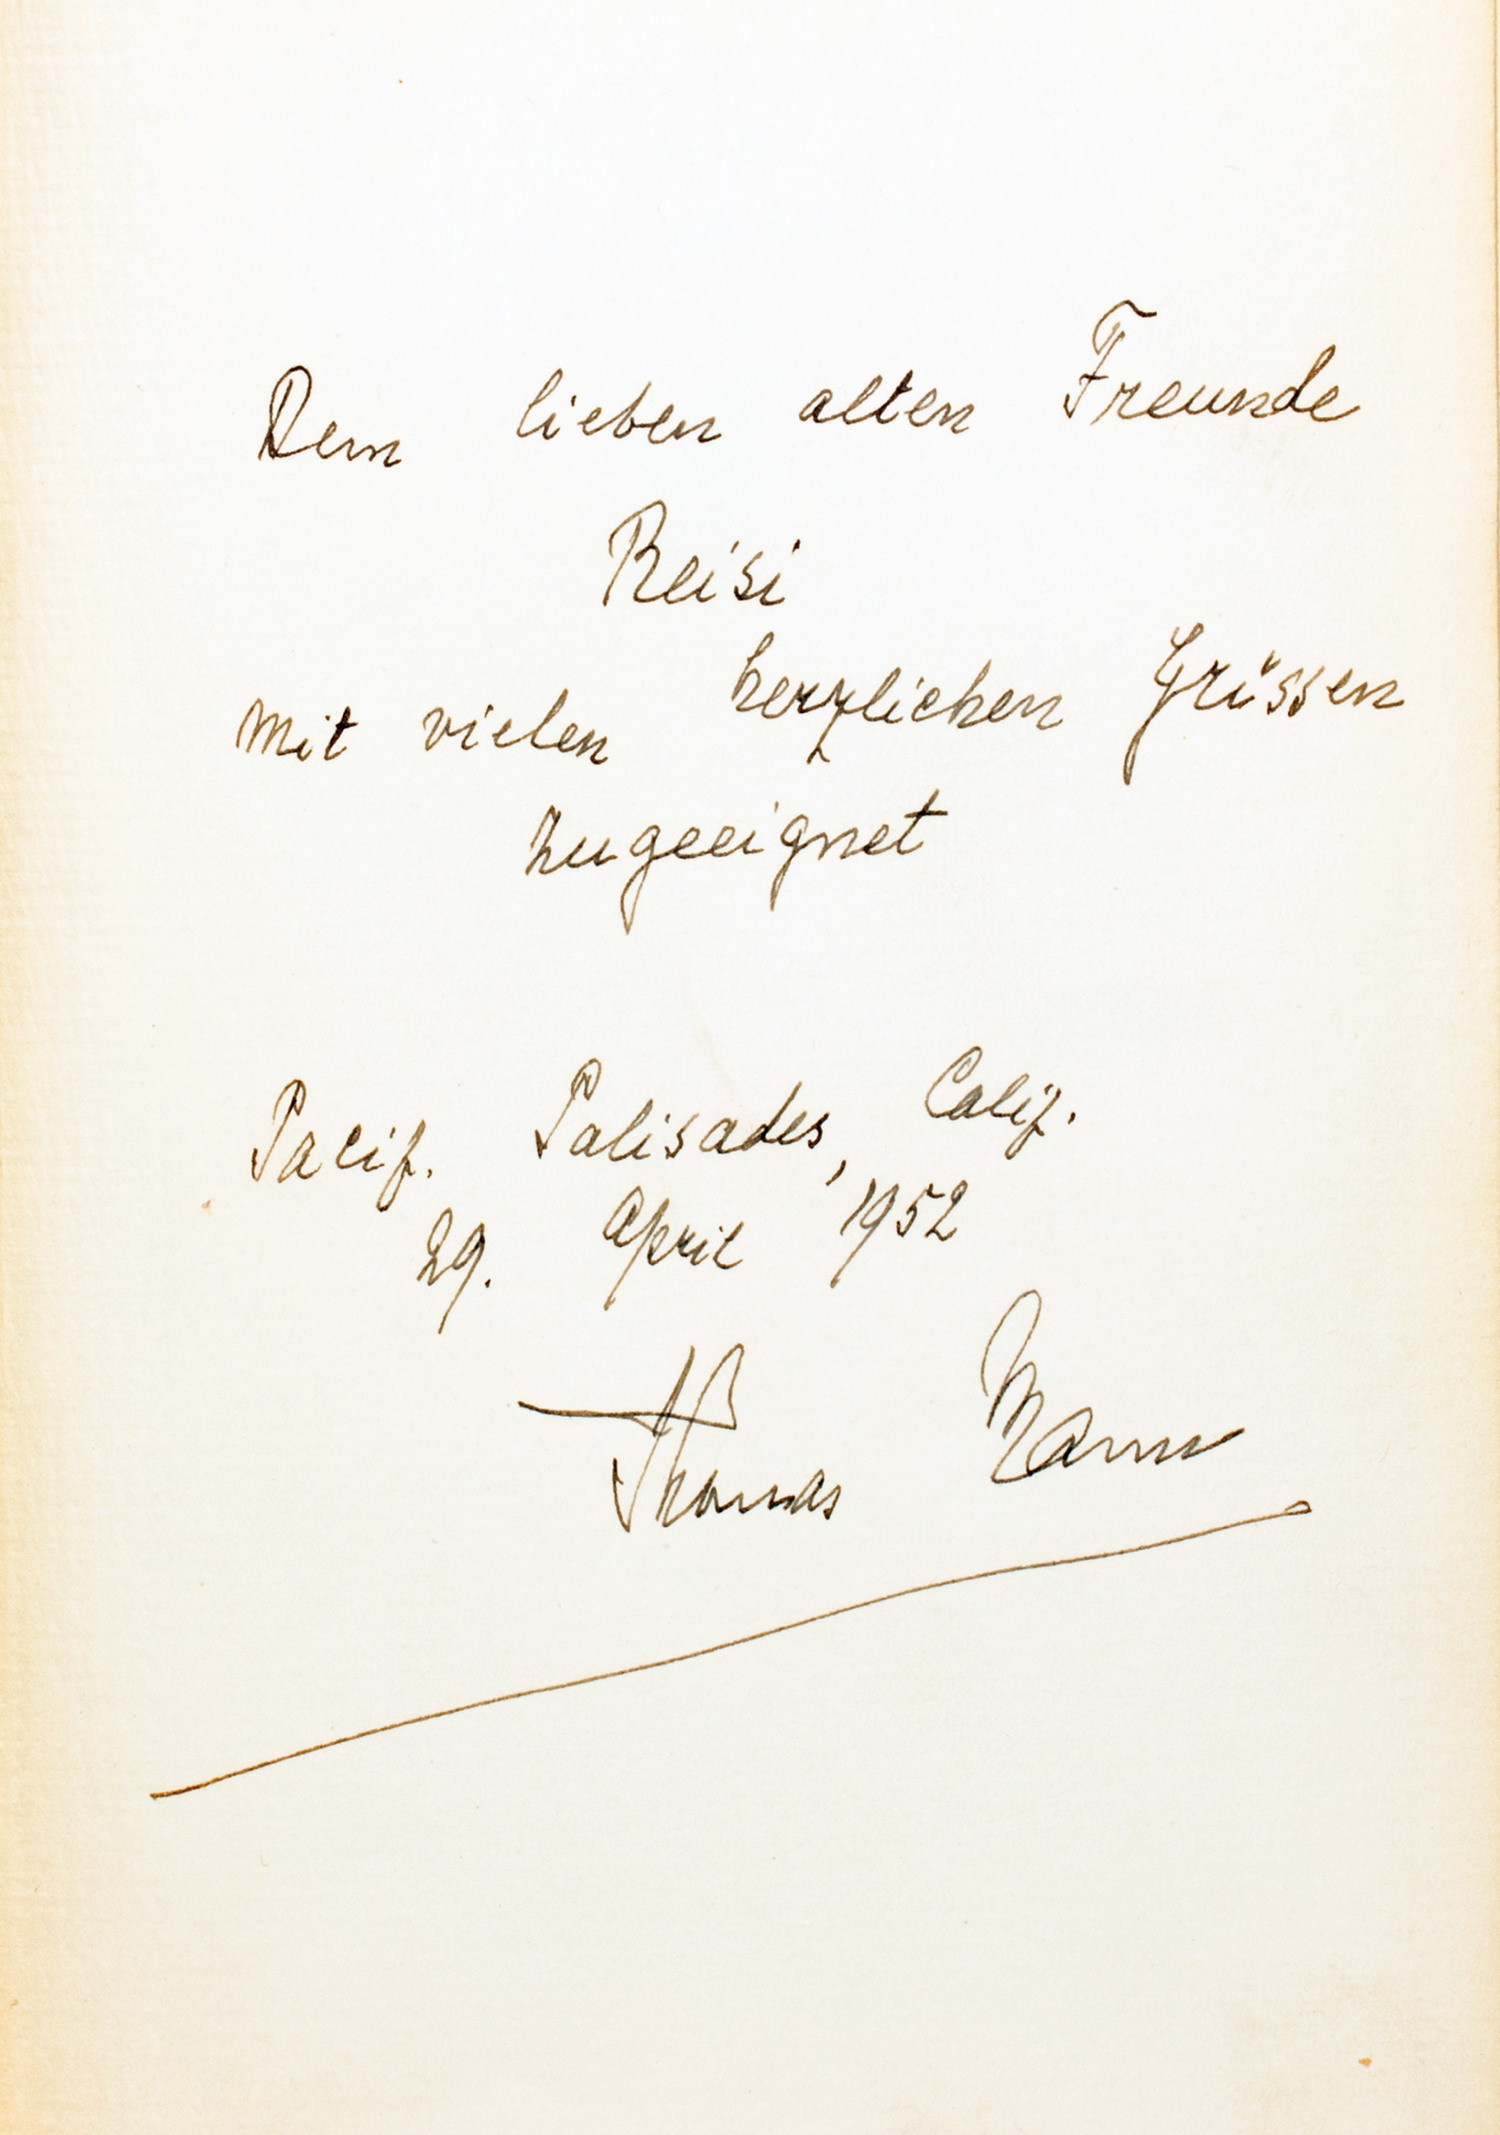 Dem lieben alten Freunde
Reisi
mit vielen herzlichen Grüssen
zugeeignet
Pacif. Palisades, Calif.
29. April 1952
Thomas Mann